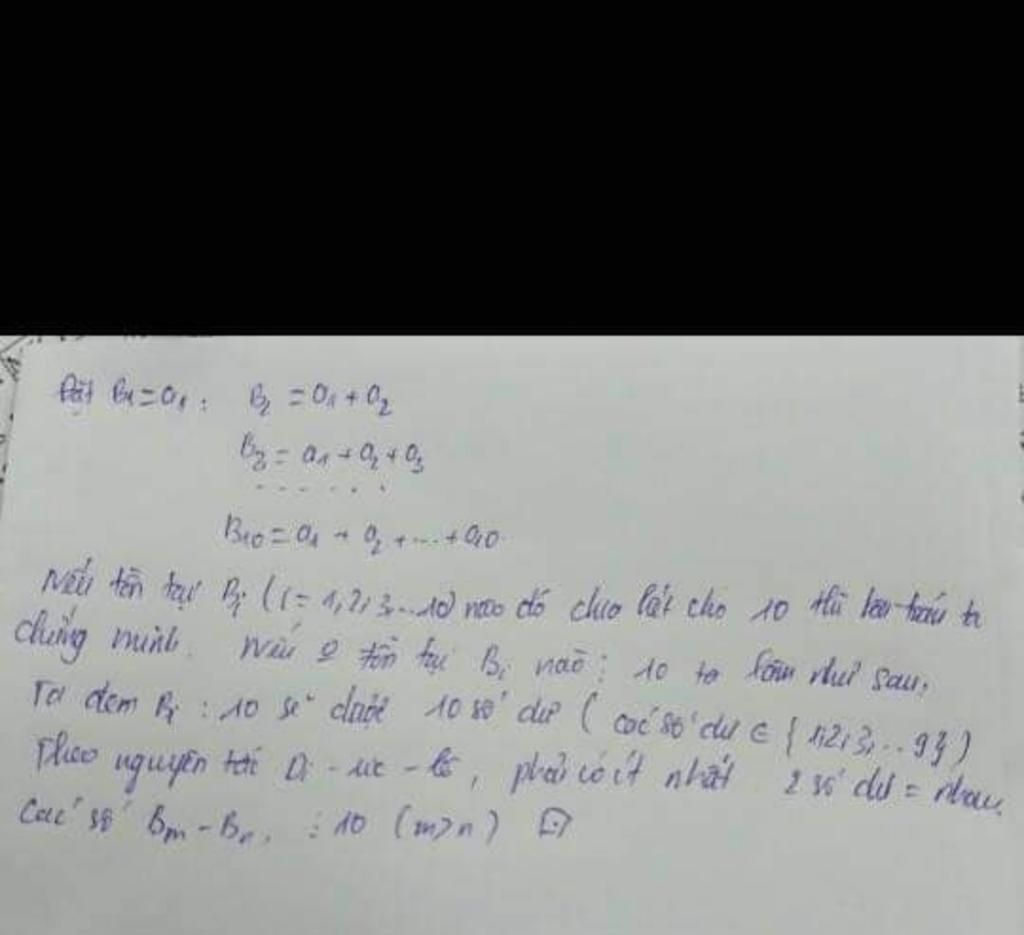 Đặt B1 = a1 : B2 = a1 + a2
B3 = a1 + a2 + a3
. . . . . .
B10 = a1 + a2 + ... + a10.
Nếu tồn tại Bi (i = 1, 2, 3, ... 10) nào đó chia hết cho 10 thì bài toán
chứng minh. Nếu tồn tại Bi nào ⋮ 10 ta làm như sau:
Ta đem Bi : 10 sẽ được 10 số dư ( các số dư ∈ { 1, 2, 3, .. 9 } )
Theo nguyên tắc Di - ric - lê, phải có ít nhất 2 số dư = nhau.
Các số Bm - Bn, ⋮ 10 (m > n)